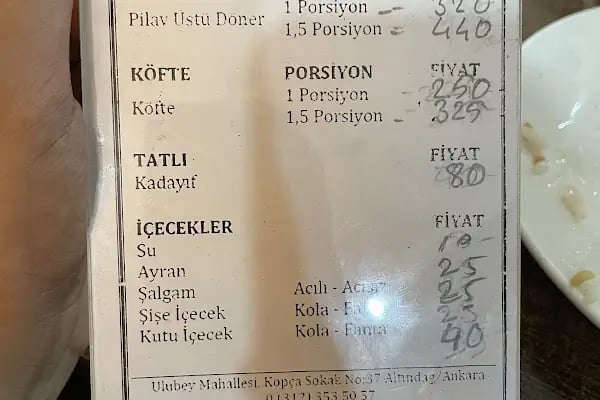 1 Porsiyon - 320
Pilav Üstü Döner 1,5 Porsiyon - 440
KÖFTE PORSİYON FİYAT
1 Porsiyon 250
Köfte 1,5 Porsiyon - 325
TATLI FİYAT
Kadayıf 80
İÇECEKLER FİYAT
Su
Ayran 25
Şalgam Acılı - Acısız 25
Şişe İçecek Kola -
Kutu İçecek Kola - Fanta 40
Ulubey Mahallesi. Kopça Sokak No:37 Altındağ/Ankara
0 (312) 353 59 57